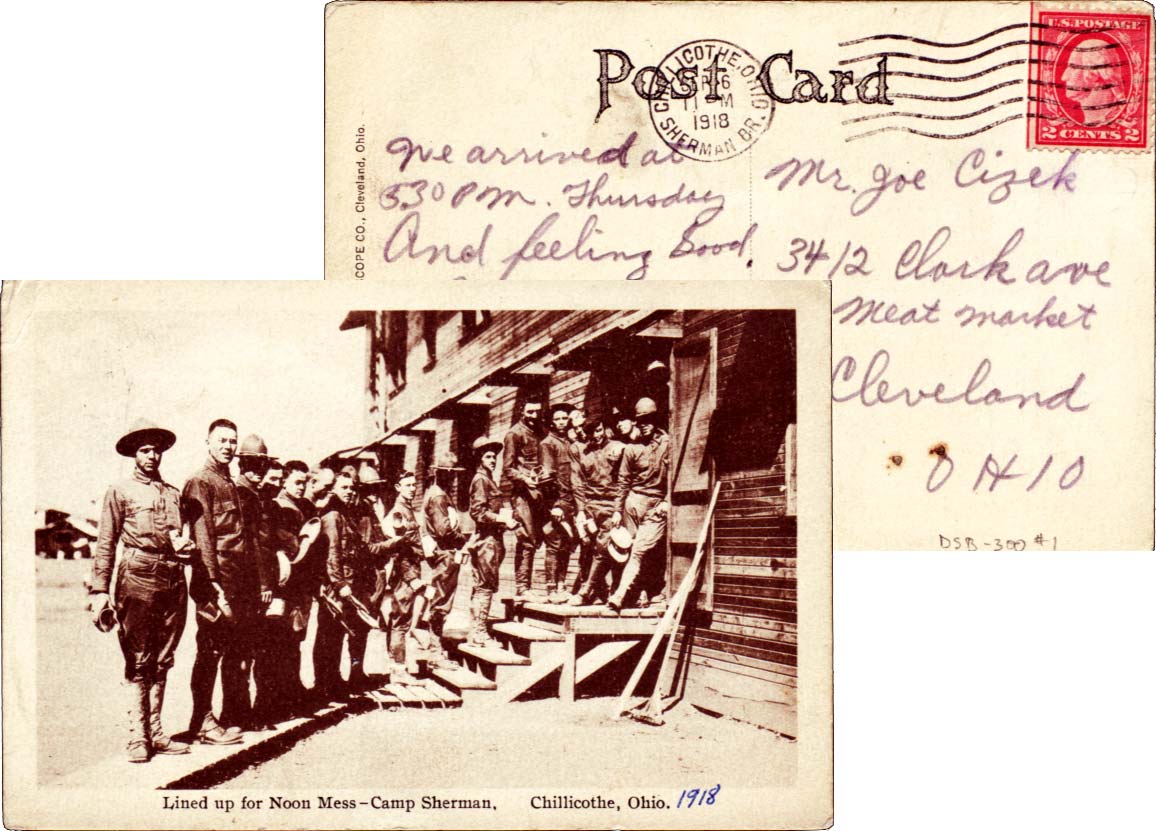 Post Card
CHILLICOTHE, OHIO
6
11 PM
1918
SHERMAN BR.
U.S. POSTAGE
2 CENTS 2
COPE CO., Cleveland, Ohio.
We arrived at
530 P.M. Thursday
And feeling Good.
Mr. Joe Cizek
3412 Clark ave
Meat market
Cleveland
OHIO
DSB-300 #1
Lined up for Noon Mess—Camp Sherman, Chillicothe, Ohio. 1918